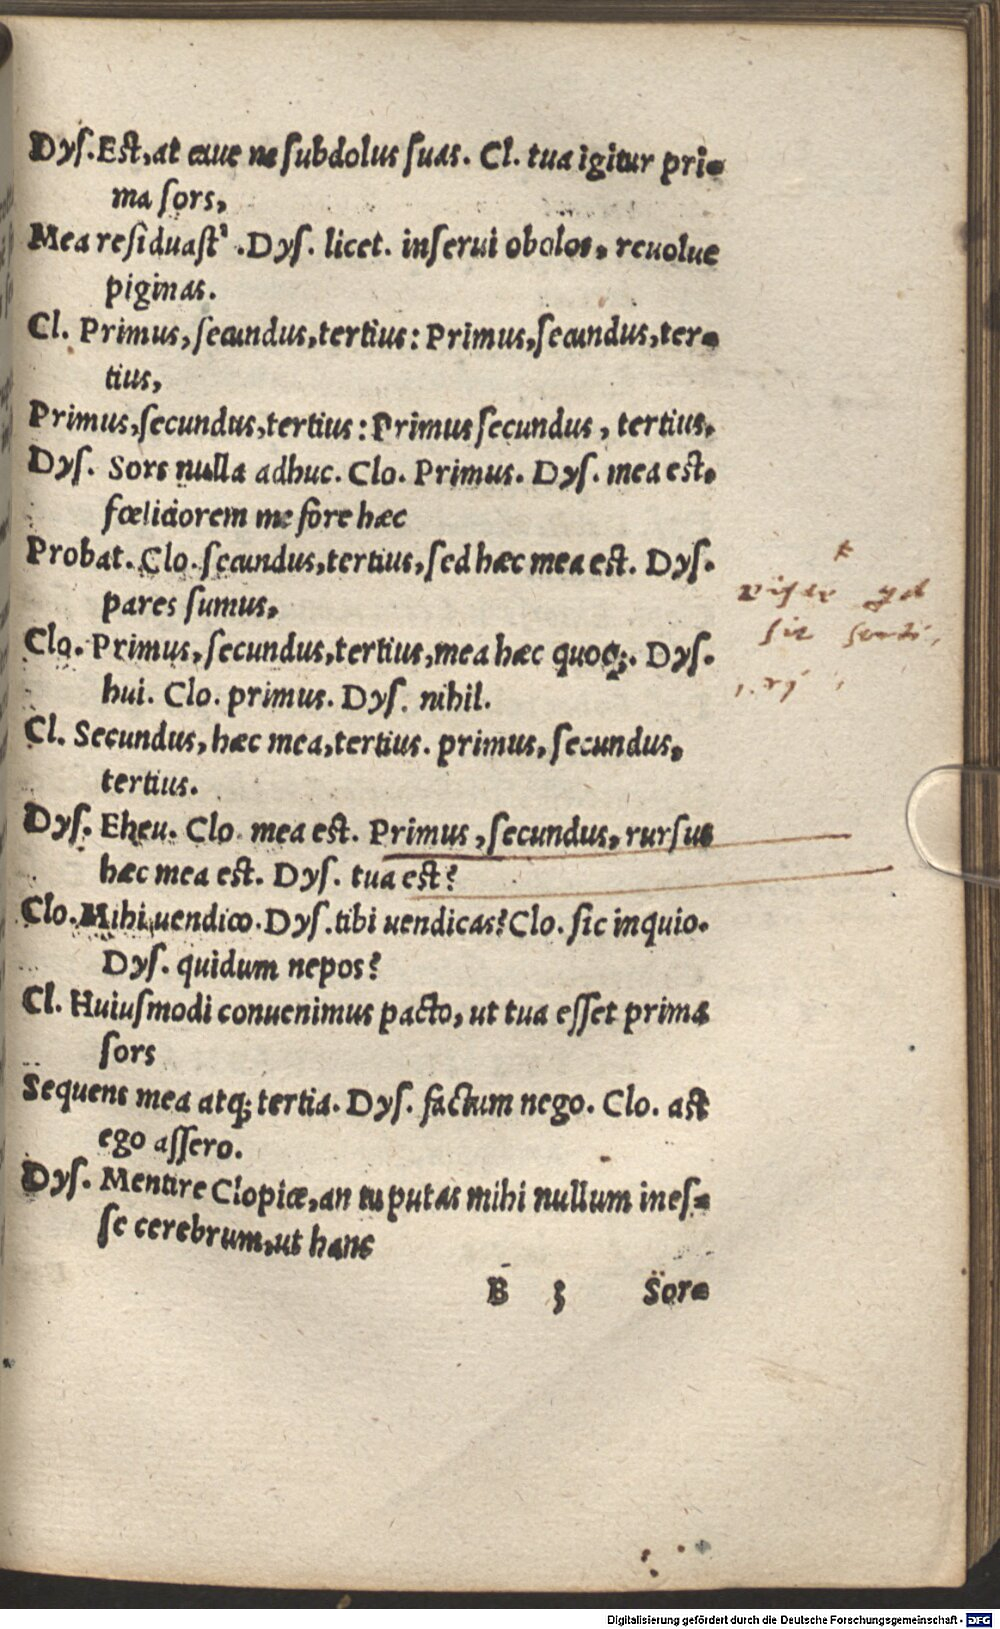 Dyſ. Eſt, at caue ne ſubdolus ſuas. Cl. tua igitur pri-
ma ſors,
Mea reſiduaſt'. Dyſ. licet. inſerui obolos, reuolue
piginas.
Cl. Primus, ſecundus, tertius: Primus, ſecundus, ter-
tius,
Primus, ſecundus, tertius: Primus ſecundus, tertius.
Dyſ. Sors nulla adhuc. Clo. Primus. Dyſ. mea eſt.
fœliciorem me fore hæc
Probat. Clo. ſecundus, tertius, ſed hæc mea eſt. Dyſ.
pares ſumus.
Clo. Primus, ſecundus, tertius, mea hæc quoq;. Dyſ.
hui. Clo. primus. Dyſ. nihil.
Cl. Secundus, hæc mea, tertius. primus, ſecundus,
tertius.
Dyſ. Eheu. Clo. mea eſt. Primus, ſecundus, rurſus
hæc mea eſt. Dyſ. tua eſt?
Clo. Mihi uendico. Dyſ. tibi uendicas? Clo. ſic inquio.
Dyſ. quidum nepos?
Cl. Huiuſmodi conuenimus pacto, ut tua eſſet prima
ſors
Sequens mea atq; tertia. Dyſ. factum nego. Clo. aſt
ego aſſero.
Dyſ. Mentire Clopice, an tu putas mihi nullum ineſ-
ſe cerebrum, ut hanc
B 3 Sor-
Digitalisierung gefördert durch die Deutsche Forschungsgemeinschaft - DFG